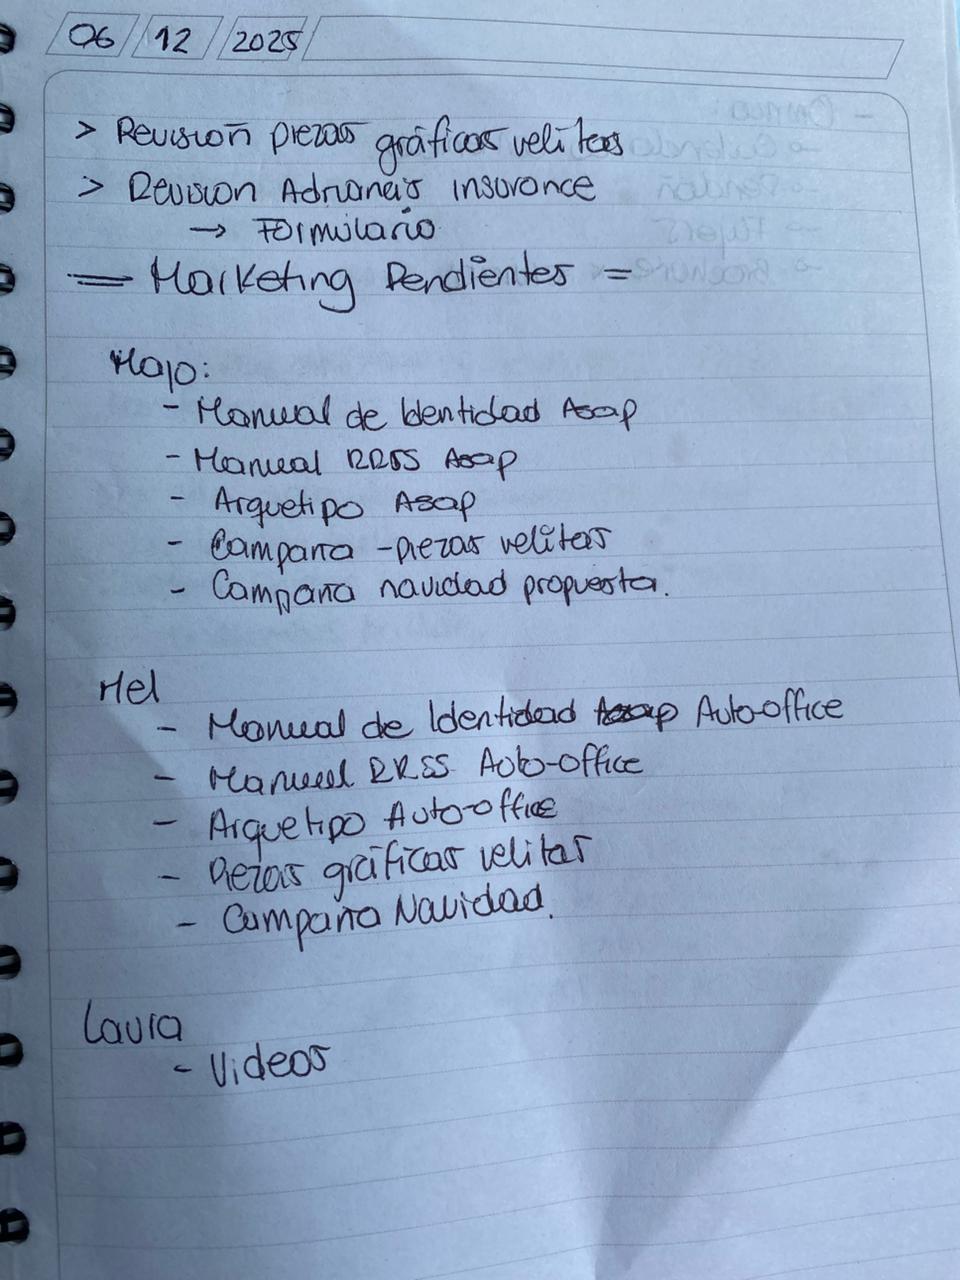 06 12 2025
> Revisión piezas gráficas velitas
> Revision Adriana's insurance
→ Formulario
= Marketing Pendientes =
Majo:
- Manual de Identidad Asap
- Manual RRSS Asap
- Arquetipo Asap
- Campaña - piezas velitas
- Campaña navidad propuesta.
Mel
- Manual de Identidad Asap Auto-office
- Manual RRSS Auto-office
- Arquetipo Auto-office
- Piezas gráficas velitas
- Campaña Navidad.
Laura
- Videos